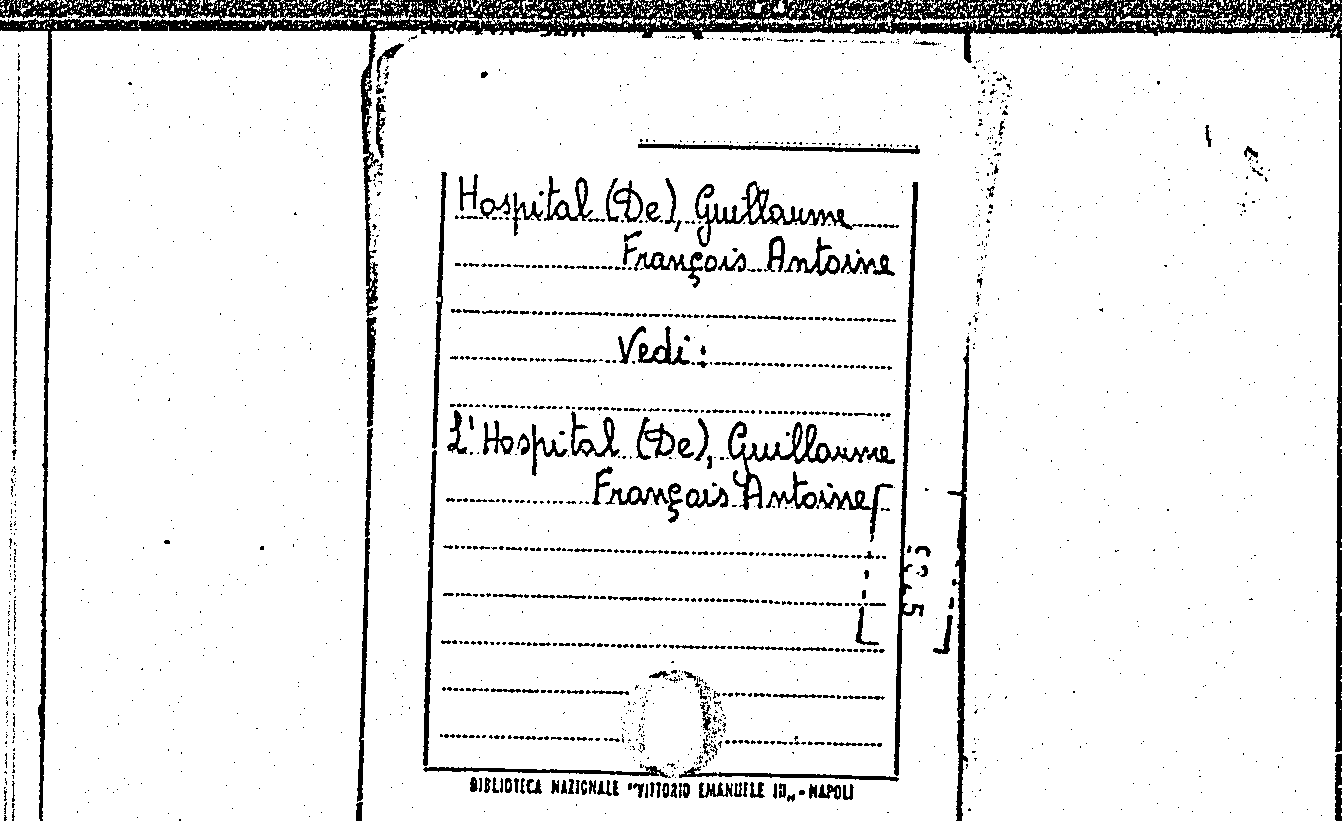 Hospital (De), Guillaume
François Antoine
Vedi:
L'Hospital (De), Guillaume
François Antoine
BIBLIOTECA NAZIONALE "VITTORIO EMANUELE III„ - NAPOLI